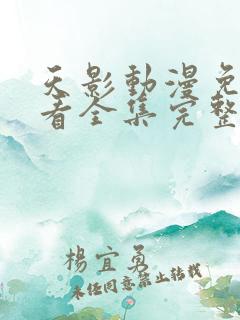 天影動漫免
看全集完整
楊宜勇
未經同意禁止轉載